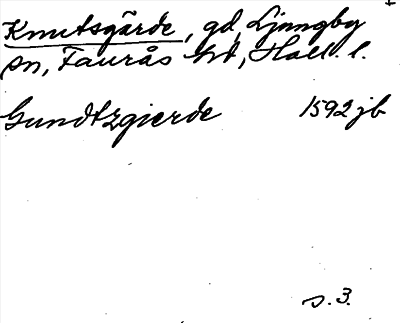 Knutsgärde, gd, Ljungby
sn, Faurås hd, Hall. l.
Gundtzgierde 1592 jb
s. 3.